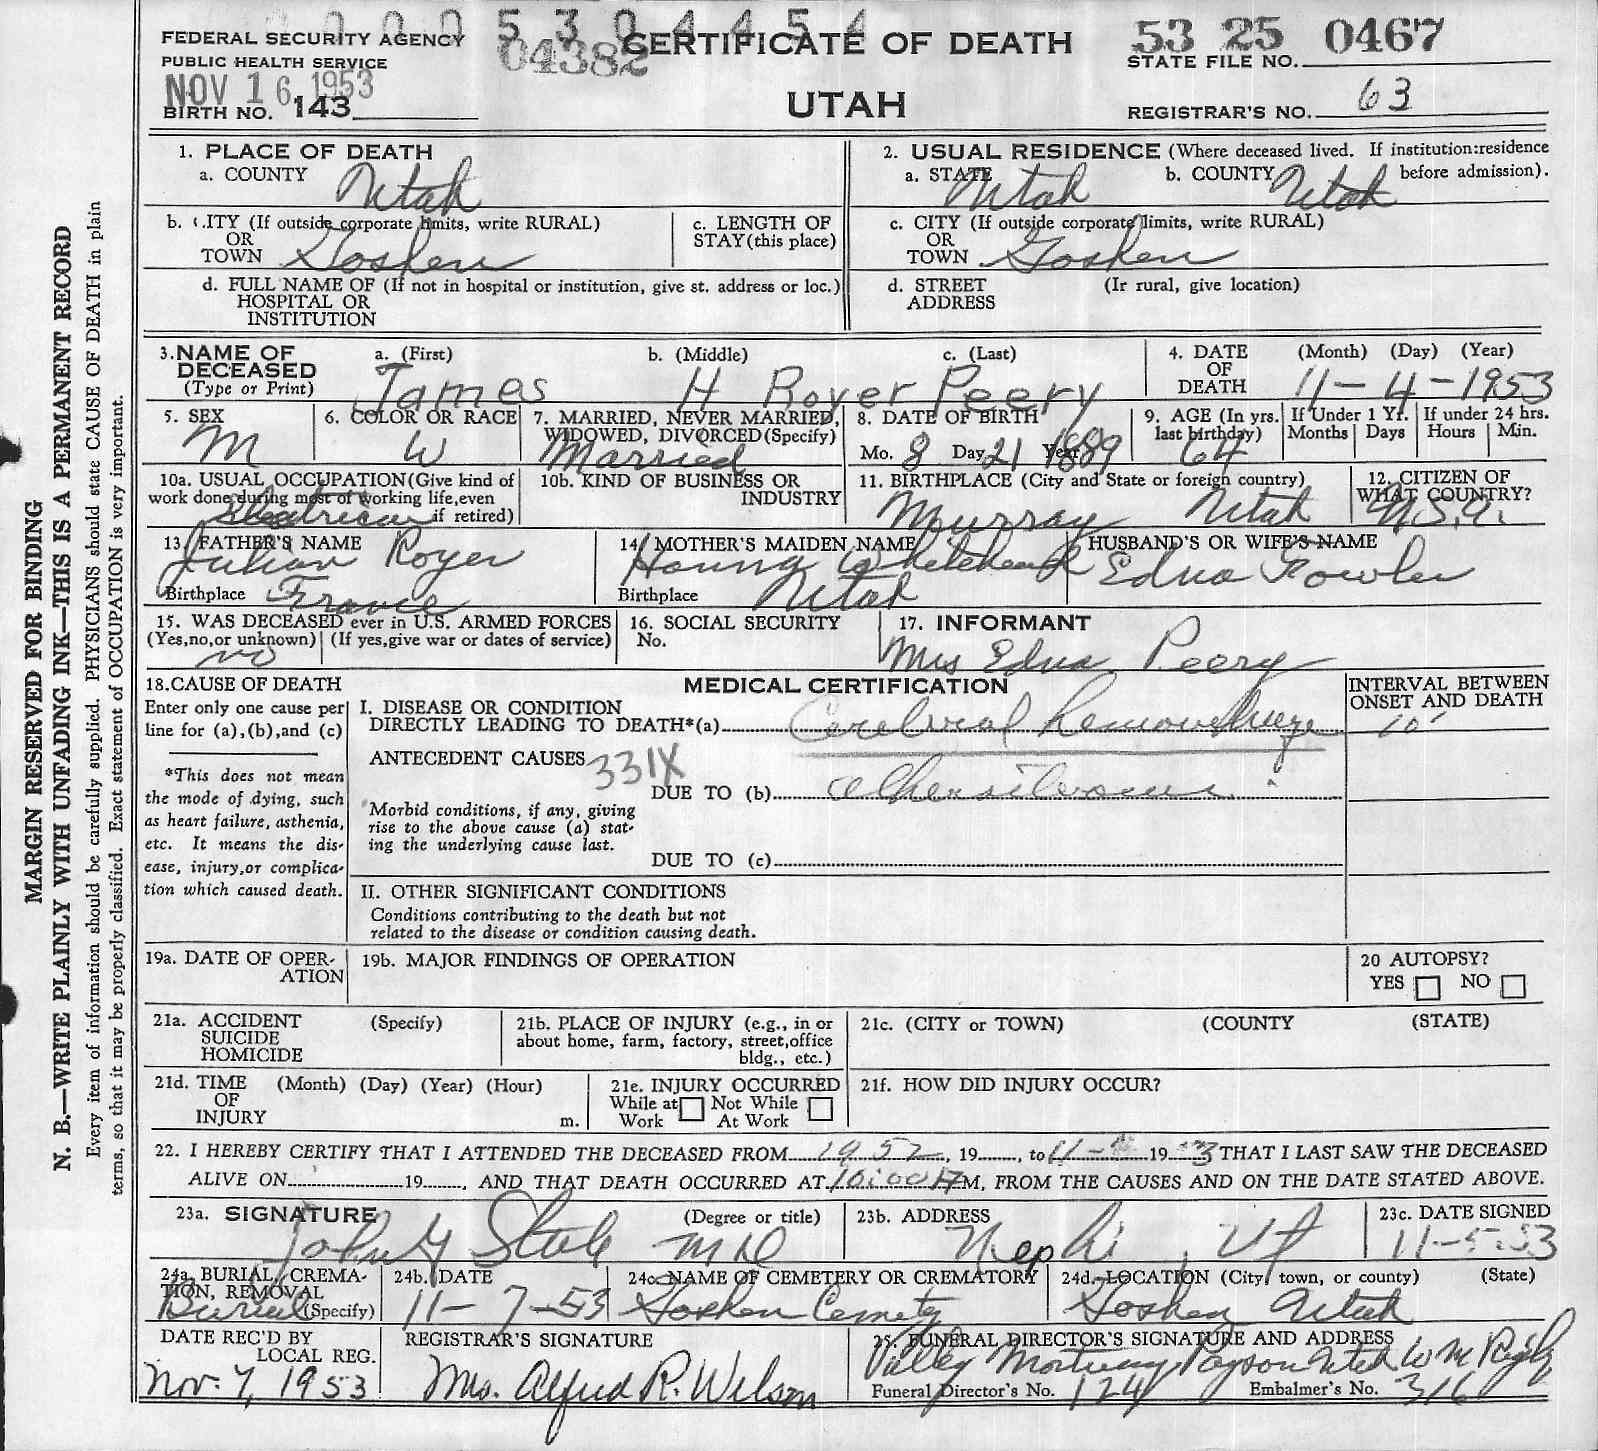 1 0 0 5 3 0 4 4 5 4
FEDERAL SECURITY AGENCY
PUBLIC HEALTH SERVICE
NOV 16 1953
BIRTH NO. 143
04382
CERTIFICATE OF DEATH
UTAH
53 25 0467
STATE FILE NO.
REGISTRAR'S NO. 63
MARGIN RESERVED FOR BINDING
N. B.—WRITE PLAINLY WITH UNFADING INK—THIS IS A PERMANENT RECORD
Every item of information should be carefully supplied. PHYSICIANS should state CAUSE OF DEATH in plain
terms, so that it may be properly classified. Exact statement of OCCUPATION is very important.
1. PLACE OF DEATH
a. COUNTY Utah
b. CITY (If outside corporate limits, write RURAL)
OR
TOWN Goshen
c. LENGTH OF
STAY (this place)
d. FULL NAME OF (If not in hospital or institution, give st. address or loc.)
HOSPITAL OR
INSTITUTION
2. USUAL RESIDENCE (Where deceased lived. If institution:residence
before admission).
a. STATE Utah b. COUNTY Utah
c. CITY (If outside corporate limits, write RURAL)
OR
TOWN Goshen
d. STREET (Ir rural, give location)
ADDRESS
3. NAME OF DECEASED
(Type or Print)
a. (First) b. (Middle) c. (Last)
James H Royer Peery
4. DATE OF DEATH (Month) (Day) (Year)
11-4-1953
5. SEX
M
6. COLOR OR RACE
W
7. MARRIED, NEVER MARRIED,
WIDOWED, DIVORCED (Specify)
Married
8. DATE OF BIRTH
Mo. 8 Day 21 Year 1889
9. AGE (In yrs. last birthday)
64
If Under 1 Yr. Months Days
If under 24 hrs. Hours Min.
10a. USUAL OCCUPATION (Give kind of
work done during most of working life, even
if retired)
10b. KIND OF BUSINESS OR
INDUSTRY
11. BIRTHPLACE (City and State or foreign country)
Murray Utah
12. CITIZEN OF
WHAT COUNTRY?
U.S.A.
13. FATHER'S NAME
Royer
Birthplace France
14. MOTHER'S MAIDEN NAME
Whitehead
Birthplace Utah
HUSBAND'S OR WIFE'S NAME
Edna Fowler
15. WAS DECEASED ever in U.S. ARMED FORCES
(Yes, no, or unknown) (If yes, give war or dates of service)
no
16. SOCIAL SECURITY
No.
17. INFORMANT
Mrs Edna Peery
18. CAUSE OF DEATH
Enter only one cause per
line for (a), (b), and (c)
*This does not mean
the mode of dying, such
as heart failure, asthenia,
etc. It means the dis-
ease, injury, or complica-
tion which caused death.
MEDICAL CERTIFICATION
I. DISEASE OR CONDITION
DIRECTLY LEADING TO DEATH*(a) Cerebral
INTERVAL BETWEEN
ONSET AND DEATH
10'
ANTECEDENT CAUSES 331X
DUE TO (b)
Morbid conditions, if any, giving
rise to the above cause (a) stat-
ing the underlying cause last.
DUE TO (c)
II. OTHER SIGNIFICANT CONDITIONS
Conditions contributing to the death but not
related to the disease or condition causing death.
19a. DATE OF OPER-
ATION
19b. MAJOR FINDINGS OF OPERATION
20 AUTOPSY?
YES NO
21a. ACCIDENT (Specify)
SUICIDE
HOMICIDE
21b. PLACE OF INJURY (e.g., in or
about home, farm, factory, street, office
bldg., etc.)
21c. (CITY or TOWN) (COUNTY (STATE)
21d. TIME (Month) (Day) (Year) (Hour)
OF
INJURY m.
21e. INJURY OCCURRED
While at Work Not While At Work
21f. HOW DID INJURY OCCUR?
22. I HEREBY CERTIFY THAT I ATTENDED THE DECEASED FROM 1952, 19, to 11- 19 53 THAT I LAST SAW THE DECEASED
ALIVE ON 19, AND THAT DEATH OCCURRED AT 10:00 M, FROM THE CAUSES AND ON THE DATE STATED ABOVE.
23a. SIGNATURE (Degree or title)
John MD
23b. ADDRESS
Nephi, Ut
23c. DATE SIGNED
11-5-53
24a. BURIAL, CREMA-
TION, REMOVAL
(Specify)
Burial
24b. DATE
11-7-53
24c. NAME OF CEMETERY OR CREMATORY
Goshen Cemety
24d. LOCATION (City, town, or county) (State)
Goshen Utah
DATE REC'D BY
LOCAL REG.
Nov. 7, 1953
REGISTRAR'S SIGNATURE
Mrs. Alfred R. Wilson
25. FUNERAL DIRECTOR'S SIGNATURE AND ADDRESS
Valley Mortuary Payson Utah W M
Funeral Director's No. 124 Embalmer's No. 316